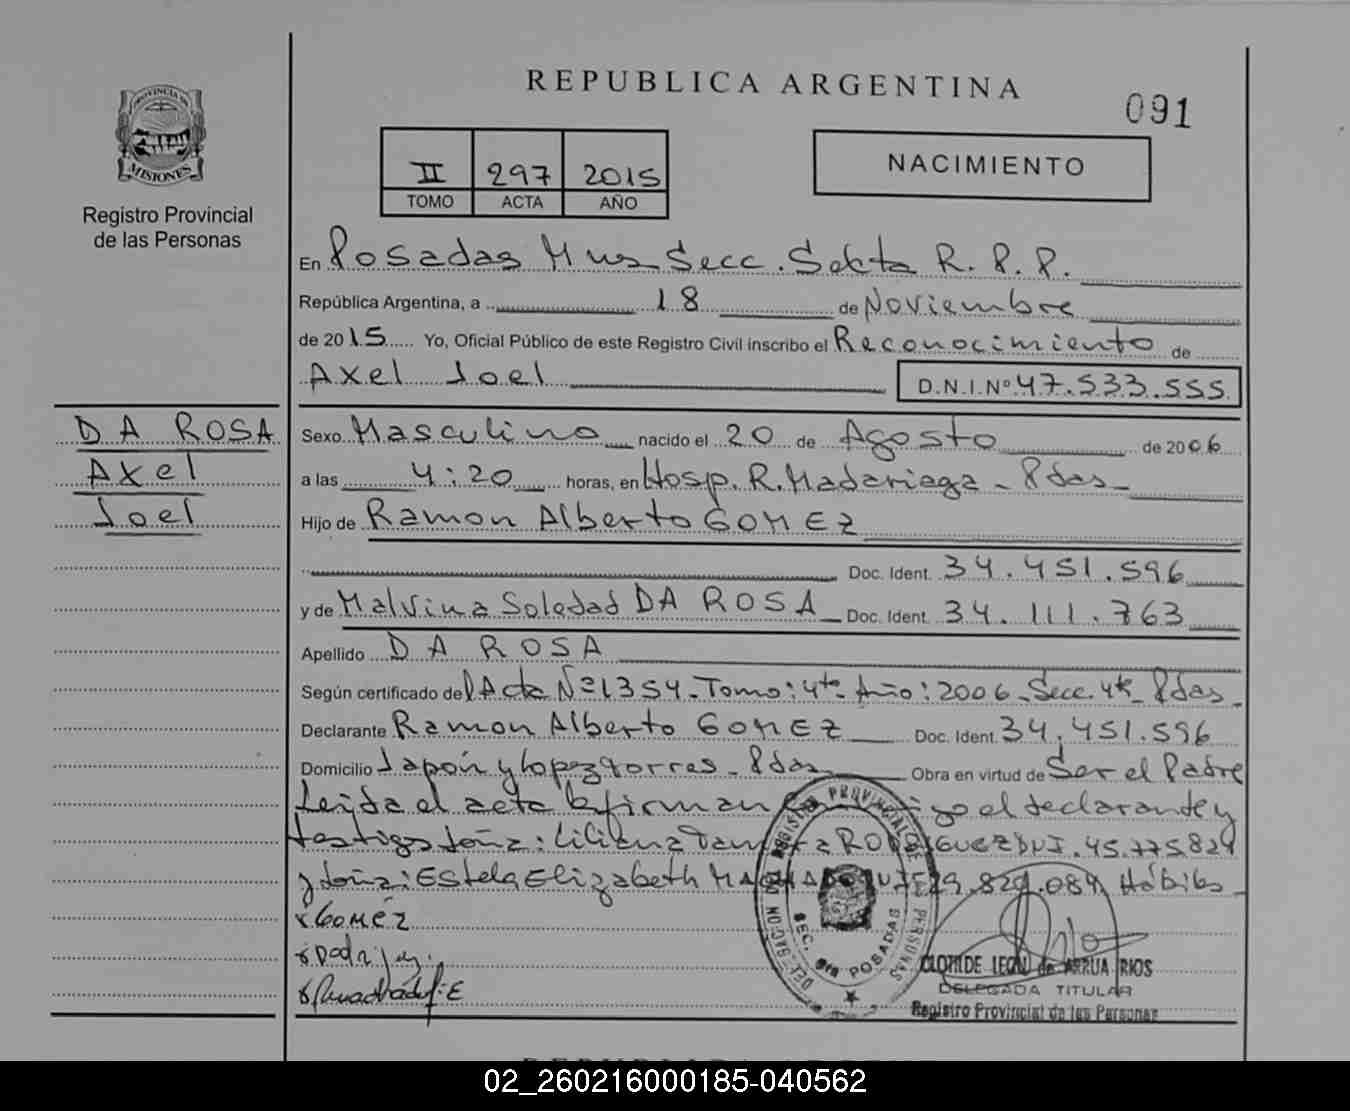 REPUBLICA ARGENTINA
091
PROVINCIA DE
MISIONES
Registro Provincial
de las Personas
II 297 2015
TOMO ACTA AÑO
NACIMIENTO
En Posadas Mnes Secc. Sexta R.P.P.
República Argentina, a 18 de Noviembre
de 2015 Yo, Oficial Público de este Registro Civil inscribo el Reconocimiento de
Axel Joel D.N.I.Nº 47.533.555
DA ROSA
Axel
Joel
Sexo Masculino nacido el 20 de Agosto de 2006
a las 4:20 horas, en Hosp. R. Madariaga - Pdas -
Hijo de Ramon Alberto GOMEZ
Doc. Ident. 34.451.596
y de Malvina Soledad DA ROSA Doc. Ident. 34.111.763
Apellido DA ROSA
Según certificado del Acta Nº1354-Tomo:4to-Año:2006-Secc.4ta-Pdas-
Declarante Ramon Alberto GOMEZ Doc. Ident. 34.451.596
Domicilio Japón y Lopez Torres - Pdas Obra en virtud de Ser el Padre
Leida el acta la firman el declarante y
testigos doña: Liliana DNI.45.775.824
y doña: Estela Elizabeth 29.829.084 Hábiles
x Gomez
REGISTRO PROVINCIAL DE LAS PERSONAS
DELEGACION
SEC. 6ta POSADAS
CLOTILDE LEON de ARRUA RIOS
DELEGADA TITULAR
Registro Provincial de las Personas
02_260216000185-040562